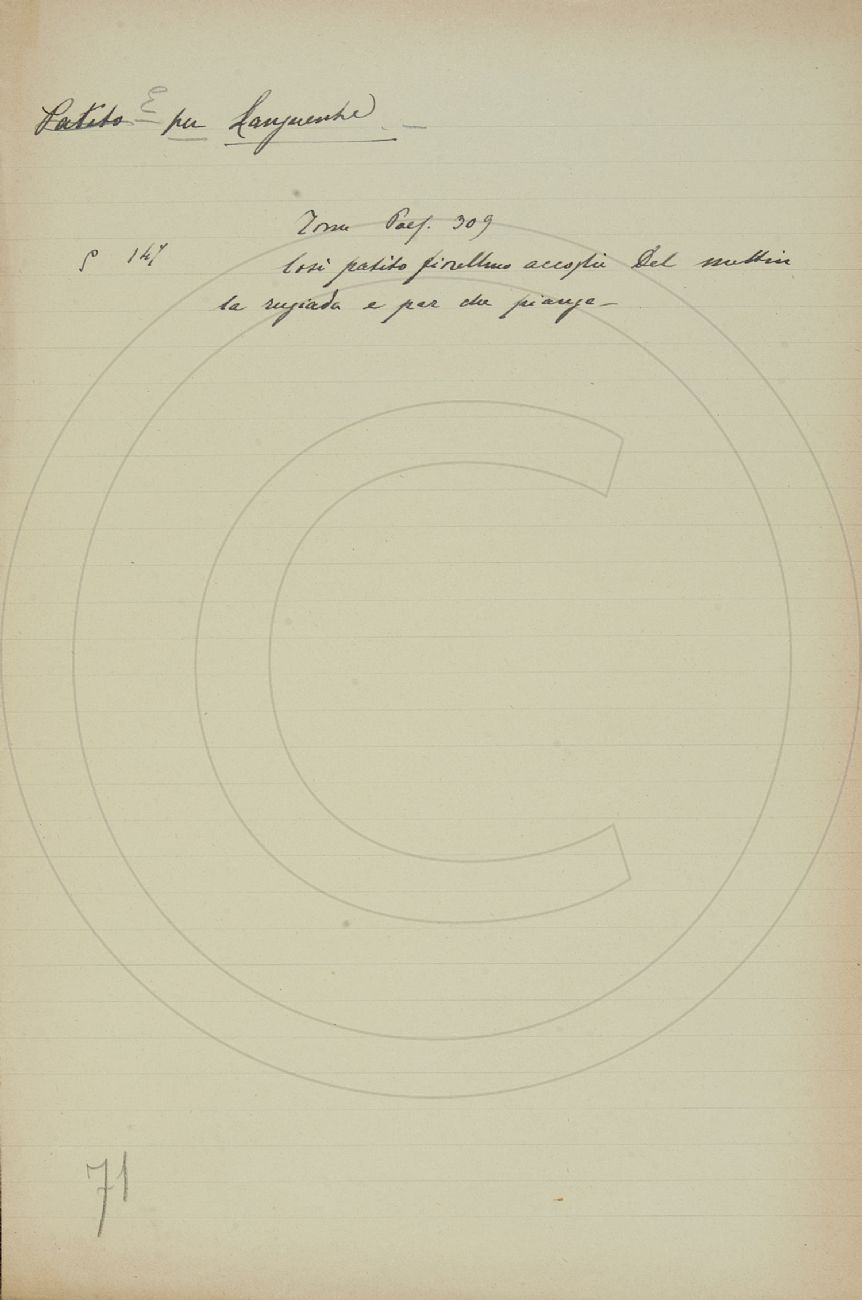 Patito E per Languente
Tomm Poes. 309
§ 147 Così patito fiorellino accoglie Del mattin
la rugiada e par che pianga
71